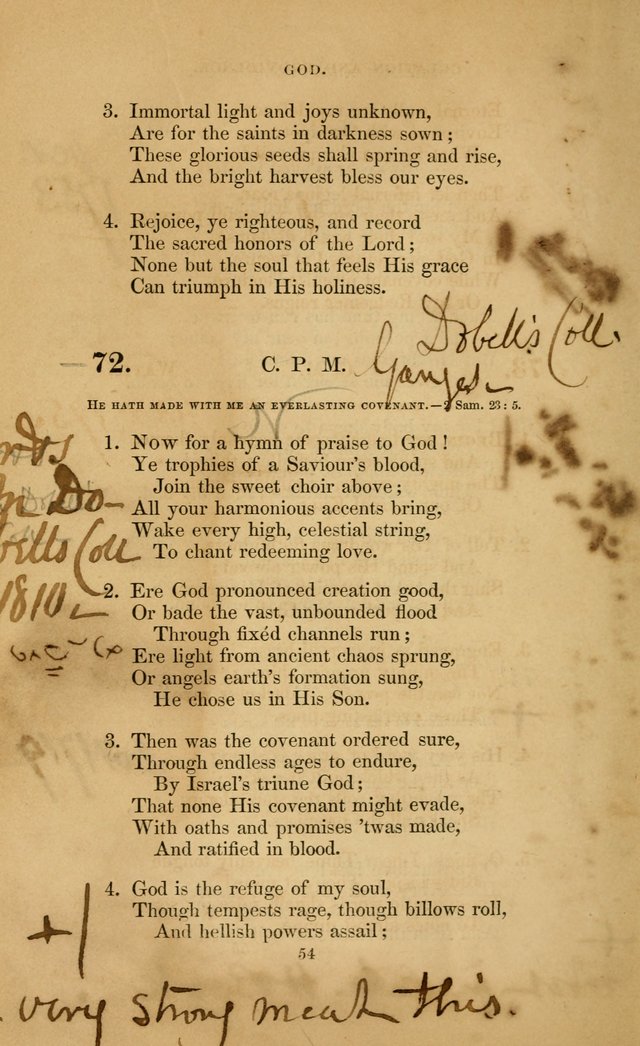 GOD.
3. Immortal light and joys unknown,
Are for the saints in darkness sown;
These glorious seeds shall spring and rise,
And the bright harvest bless our eyes.
4. Rejoice, ye righteous, and record
The sacred honors of the Lord;
None but the soul that feels His grace
Can triumph in His holiness.
Dobell's Coll.
Ganges
72. C. P. M.
He hath made with me an everlasting covenant.—2 Sam. 23: 5.
1. Now for a hymn of praise to God!
Ye trophies of a Saviour's blood,
Join the sweet choir above;
All your harmonious accents bring,
Wake every high, celestial string,
To chant redeeming love.
Do-
bells Coll
1810
2. Ere God pronounced creation good,
Or bade the vast, unbounded flood
Through fixéd channels run;
Ere light from ancient chaos sprung,
Or angels earth's formation sung,
He chose us in His Son.
3. Then was the covenant ordered sure,
Through endless ages to endure,
By Israel's triune God;
That none His covenant might evade,
With oaths and promises 'twas made,
And ratified in blood.
4. God is the refuge of my soul,
Though tempests rage, though billows roll,
And hellish powers assail;
54
very strong meat this.